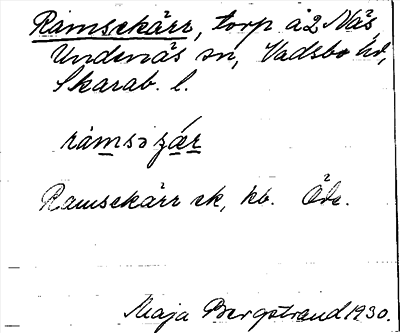 Ramsekärr, torp å 2 Näs,
Undenäs sn, Vadsbo hd,
Skarab. l.
ramsəʒær
Ramsekärr ek, kb.
Maja Bergstrand 1930.